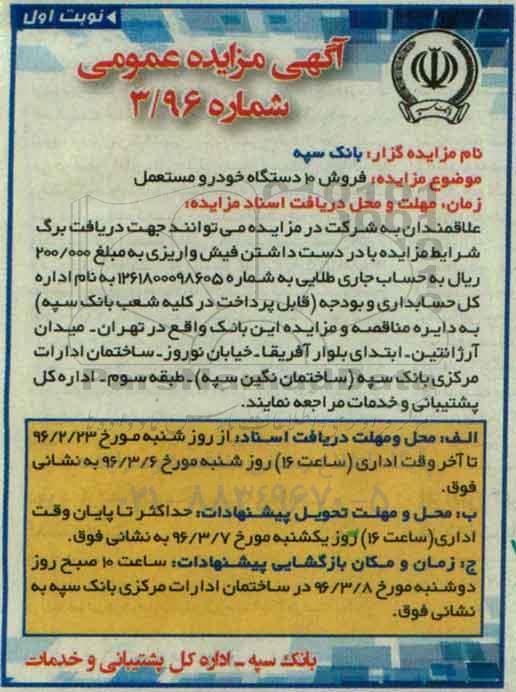 نوبت اول
آگهی مزایده عمومی
شماره ۳/۹۶
نام مزایده گزار: بانک سپه
موضوع مزایده: فروش ۱۰ دستگاه خودرو مستعمل
زمان، مهلت و محل دریافت اسناد مزایده:
علاقمندان به شرکت در مزایده می توانند جهت دریافت برگ
شرایط مزایده با در دست داشتن فیش واریزی به مبلغ ۲۰۰/۰۰۰
ریال به حساب جاری طلایی به شماره ۱۲۶۱۸۰۰۰۹۸۶۰۵ به نام اداره
کل حسابداری و بودجه (قابل پرداخت در کلیه شعب بانک سپه)
به دایره مناقصه و مزایده این بانک واقع در تهران ـ میدان
آرژانتین ـ ابتدای بلوار آفریقا ـ خیابان نوروز ـ ساختمان ادارات
مرکزی بانک سپه (ساختمان نگین سپه) ـ طبقه سوم ـ اداره کل
پشتیبانی و خدمات مراجعه نمایند.
الف: محل و مهلت دریافت اسناد: از روز شنبه مورخ ۹۶/۲/۲۳
تا آخر وقت اداری (ساعت ۱۶) روز شنبه مورخ ۹۶/۳/۶ به نشانی
فوق.
ب: محل و مهلت تحویل پیشنهادات: حداکثر تا پایان وقت
اداری (ساعت ۱۶) روز یکشنبه مورخ ۹۶/۳/۷ به نشانی فوق.
ج: زمان و مکان بازگشایی پیشنهادات: ساعت ۱۰ صبح روز
دوشنبه مورخ ۹۶/۳/۸ در ساختمان ادارات مرکزی بانک سپه به
نشانی فوق.
بانک سپه ـ اداره کل پشتیبانی و خدمات